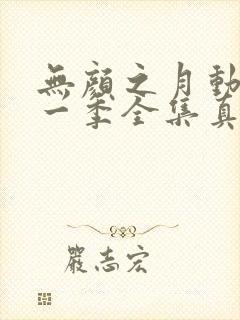 無顏之月動
一季全集真
嚴志宏